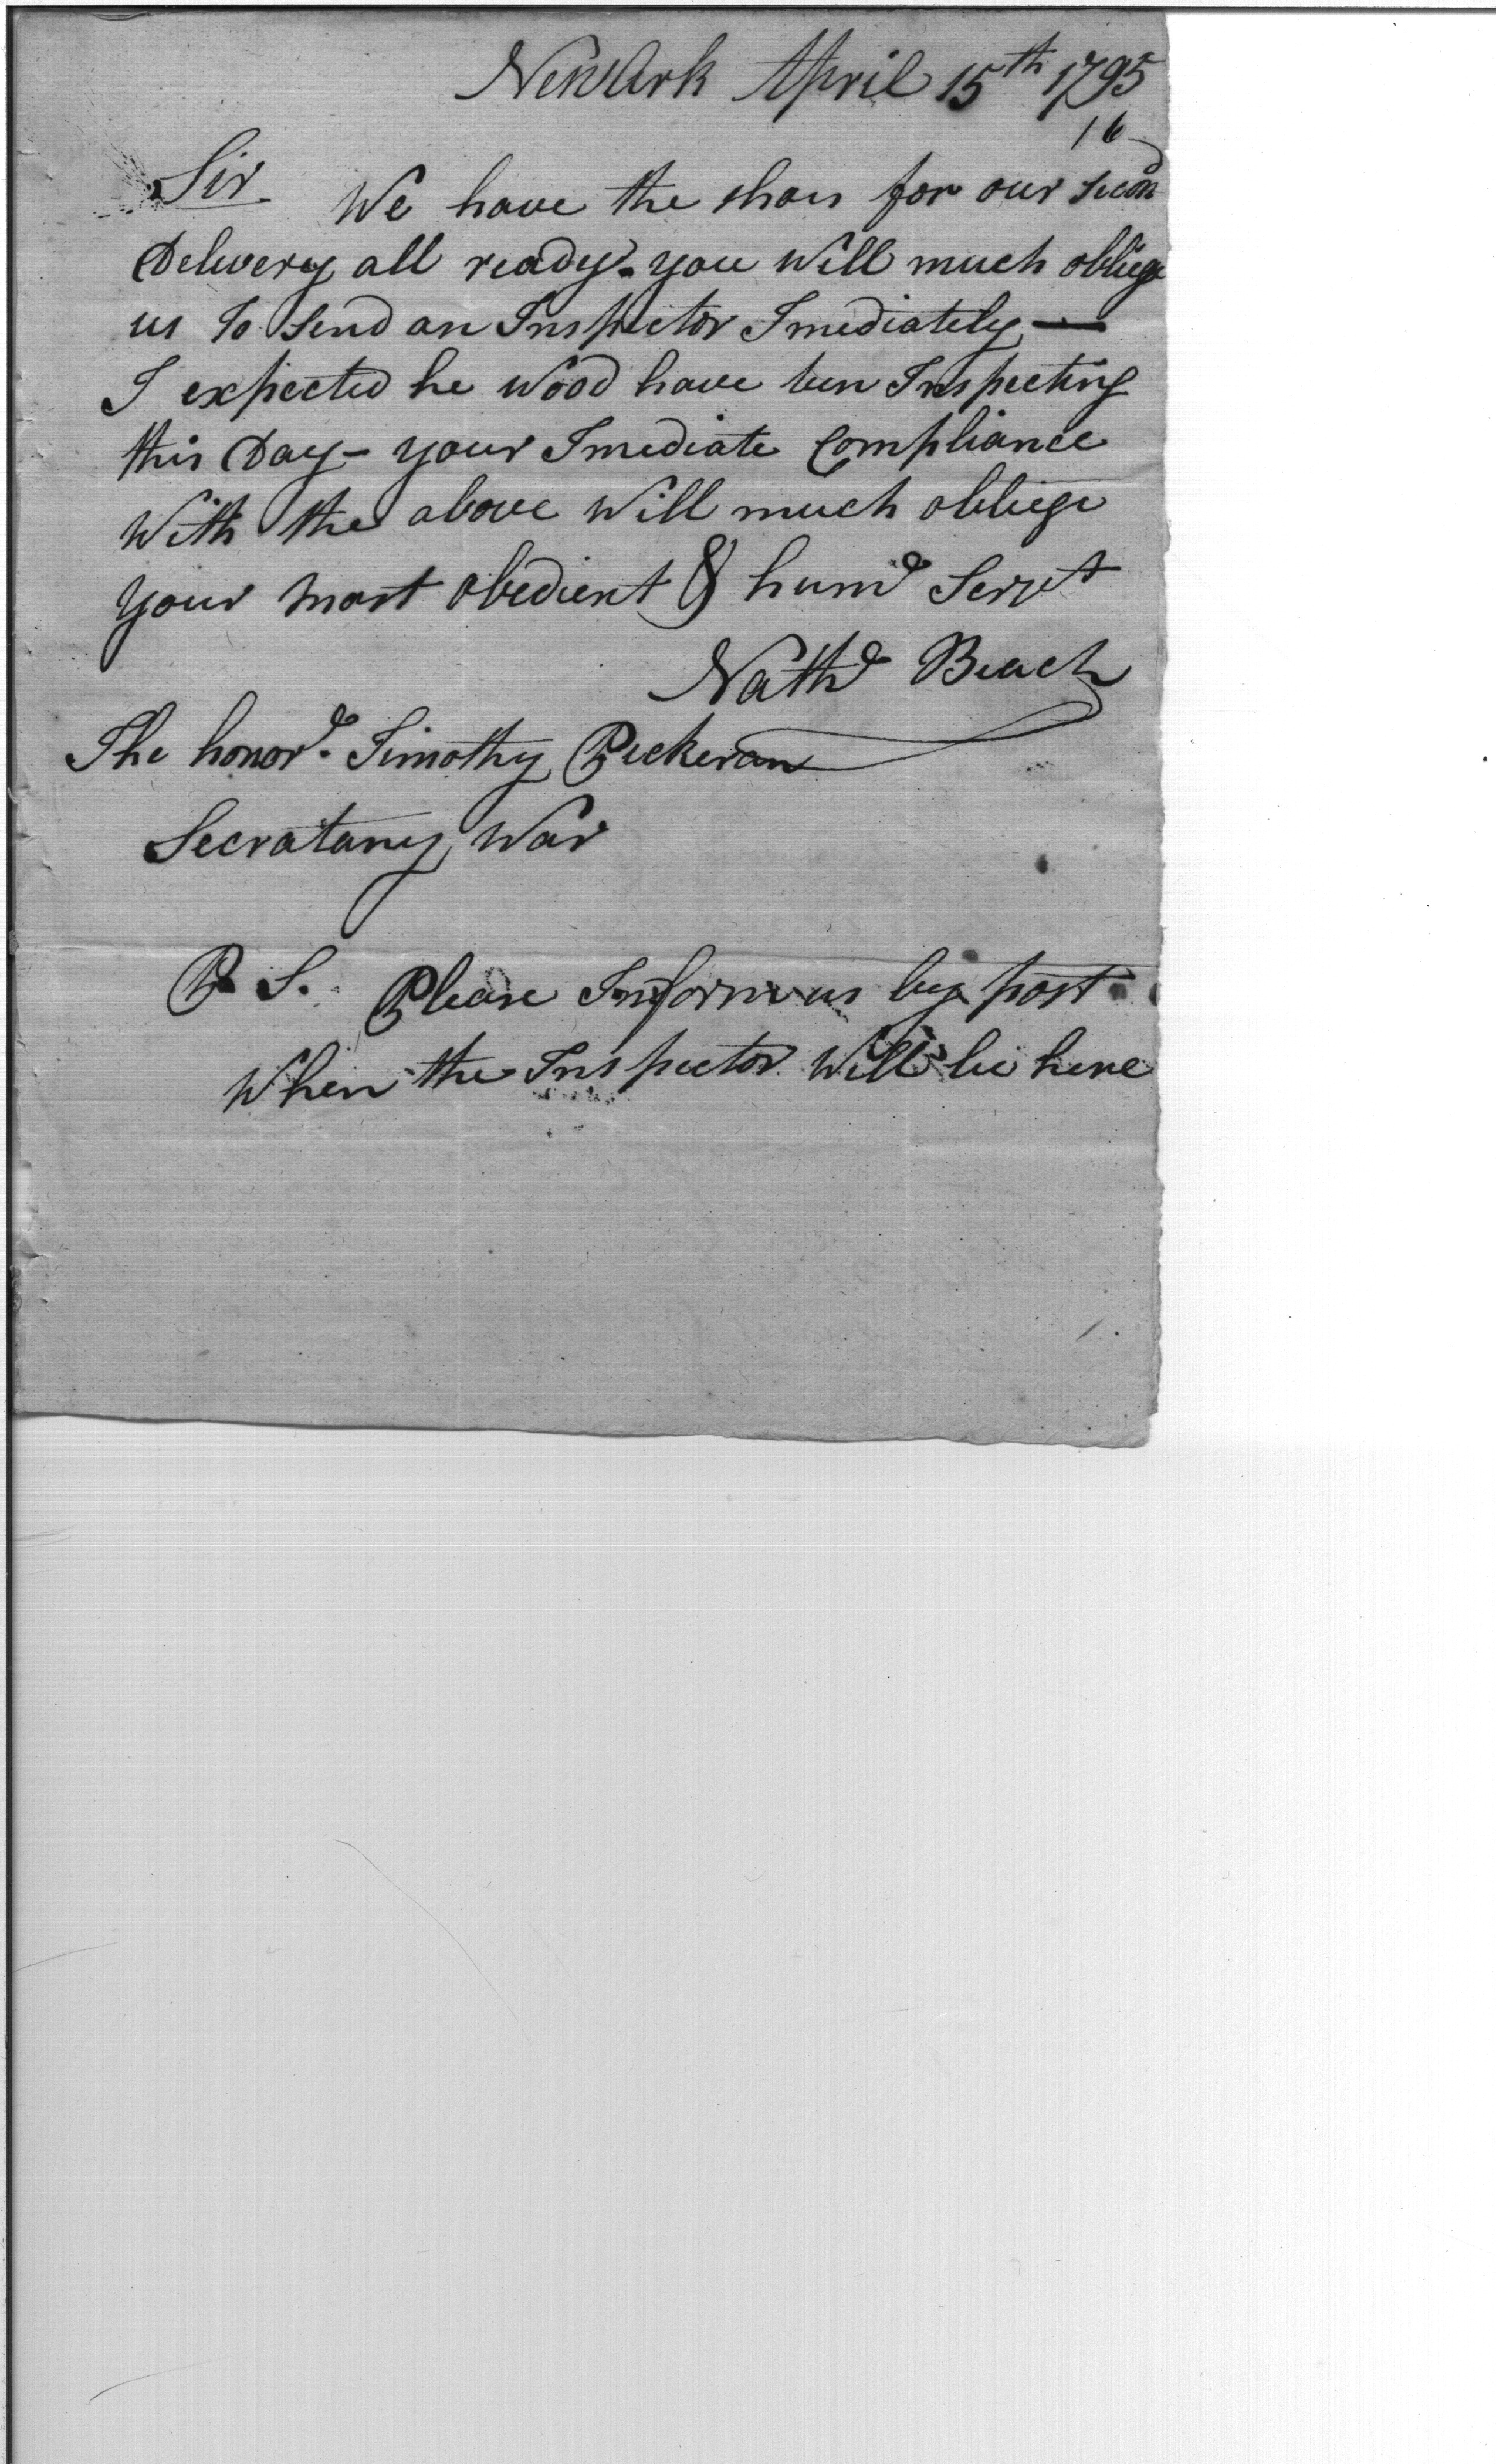 NewArk April 15th 1795
16
Sir We have the shoes for our second
Delivery all ready - you Will much obliege
us To Send an Inspector Imediately —
I expected he Wood have ben Inspecting
this Day - your Imediate Compliance
With the above Will much obliege
your most obedient & humb Servt
Nathl Beach
The honorl. Timothy Pickeran
Secratary War
P. S. Please Inform us by post
When the Inspector Will be here